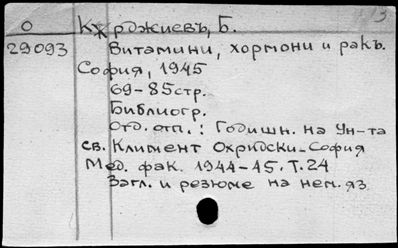 13
О Кѫрджиевъ, Б.
29093 Витамини, хормони и ракъ.
София, 1945
69-85стр.
Библиогр.
Отд. отп.: Годишн. на Ун-та
св. Климент Охридски-София
Мед. фак. 1944-45. Т.24
Загл. и резюме на нем. яз.